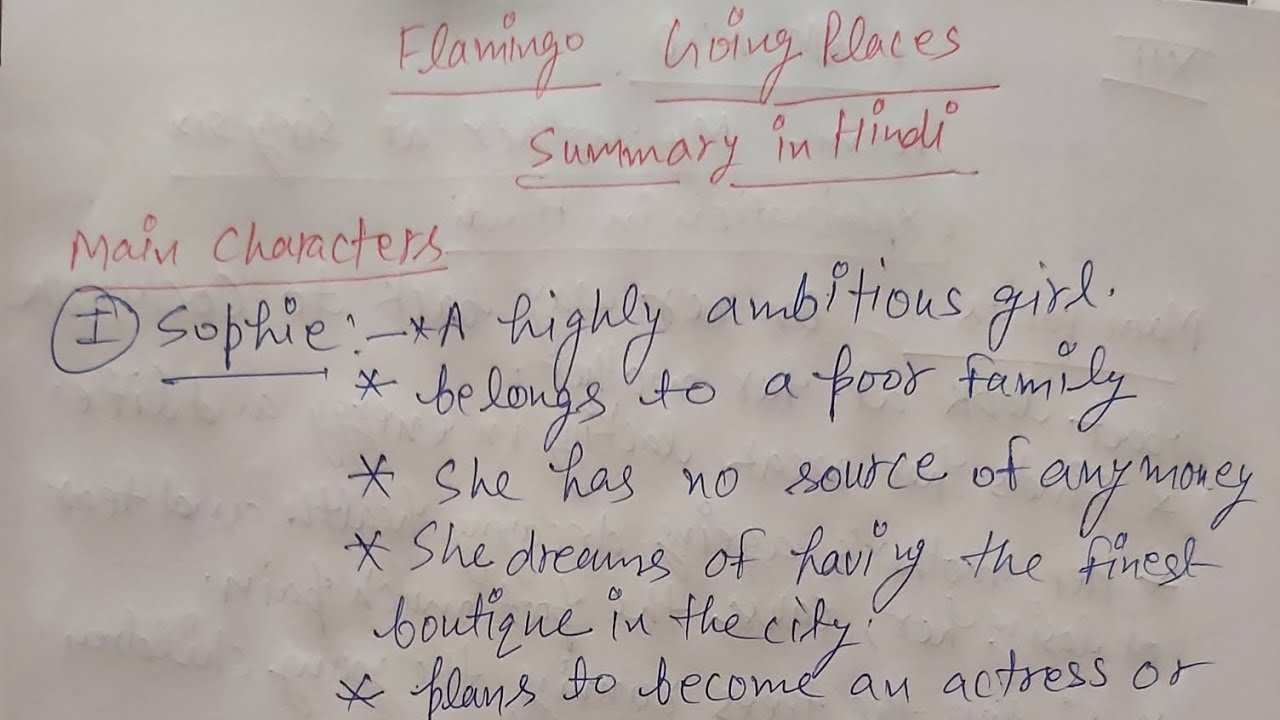 Flamingo Going Places
Summary in Hindi
Main Characters
I Sophie:- * A highly ambitious girl.
* belongs to a poor family
* She has no source of any money
* She dreams of having the finest
boutique in the city.
* plans to become an actress or